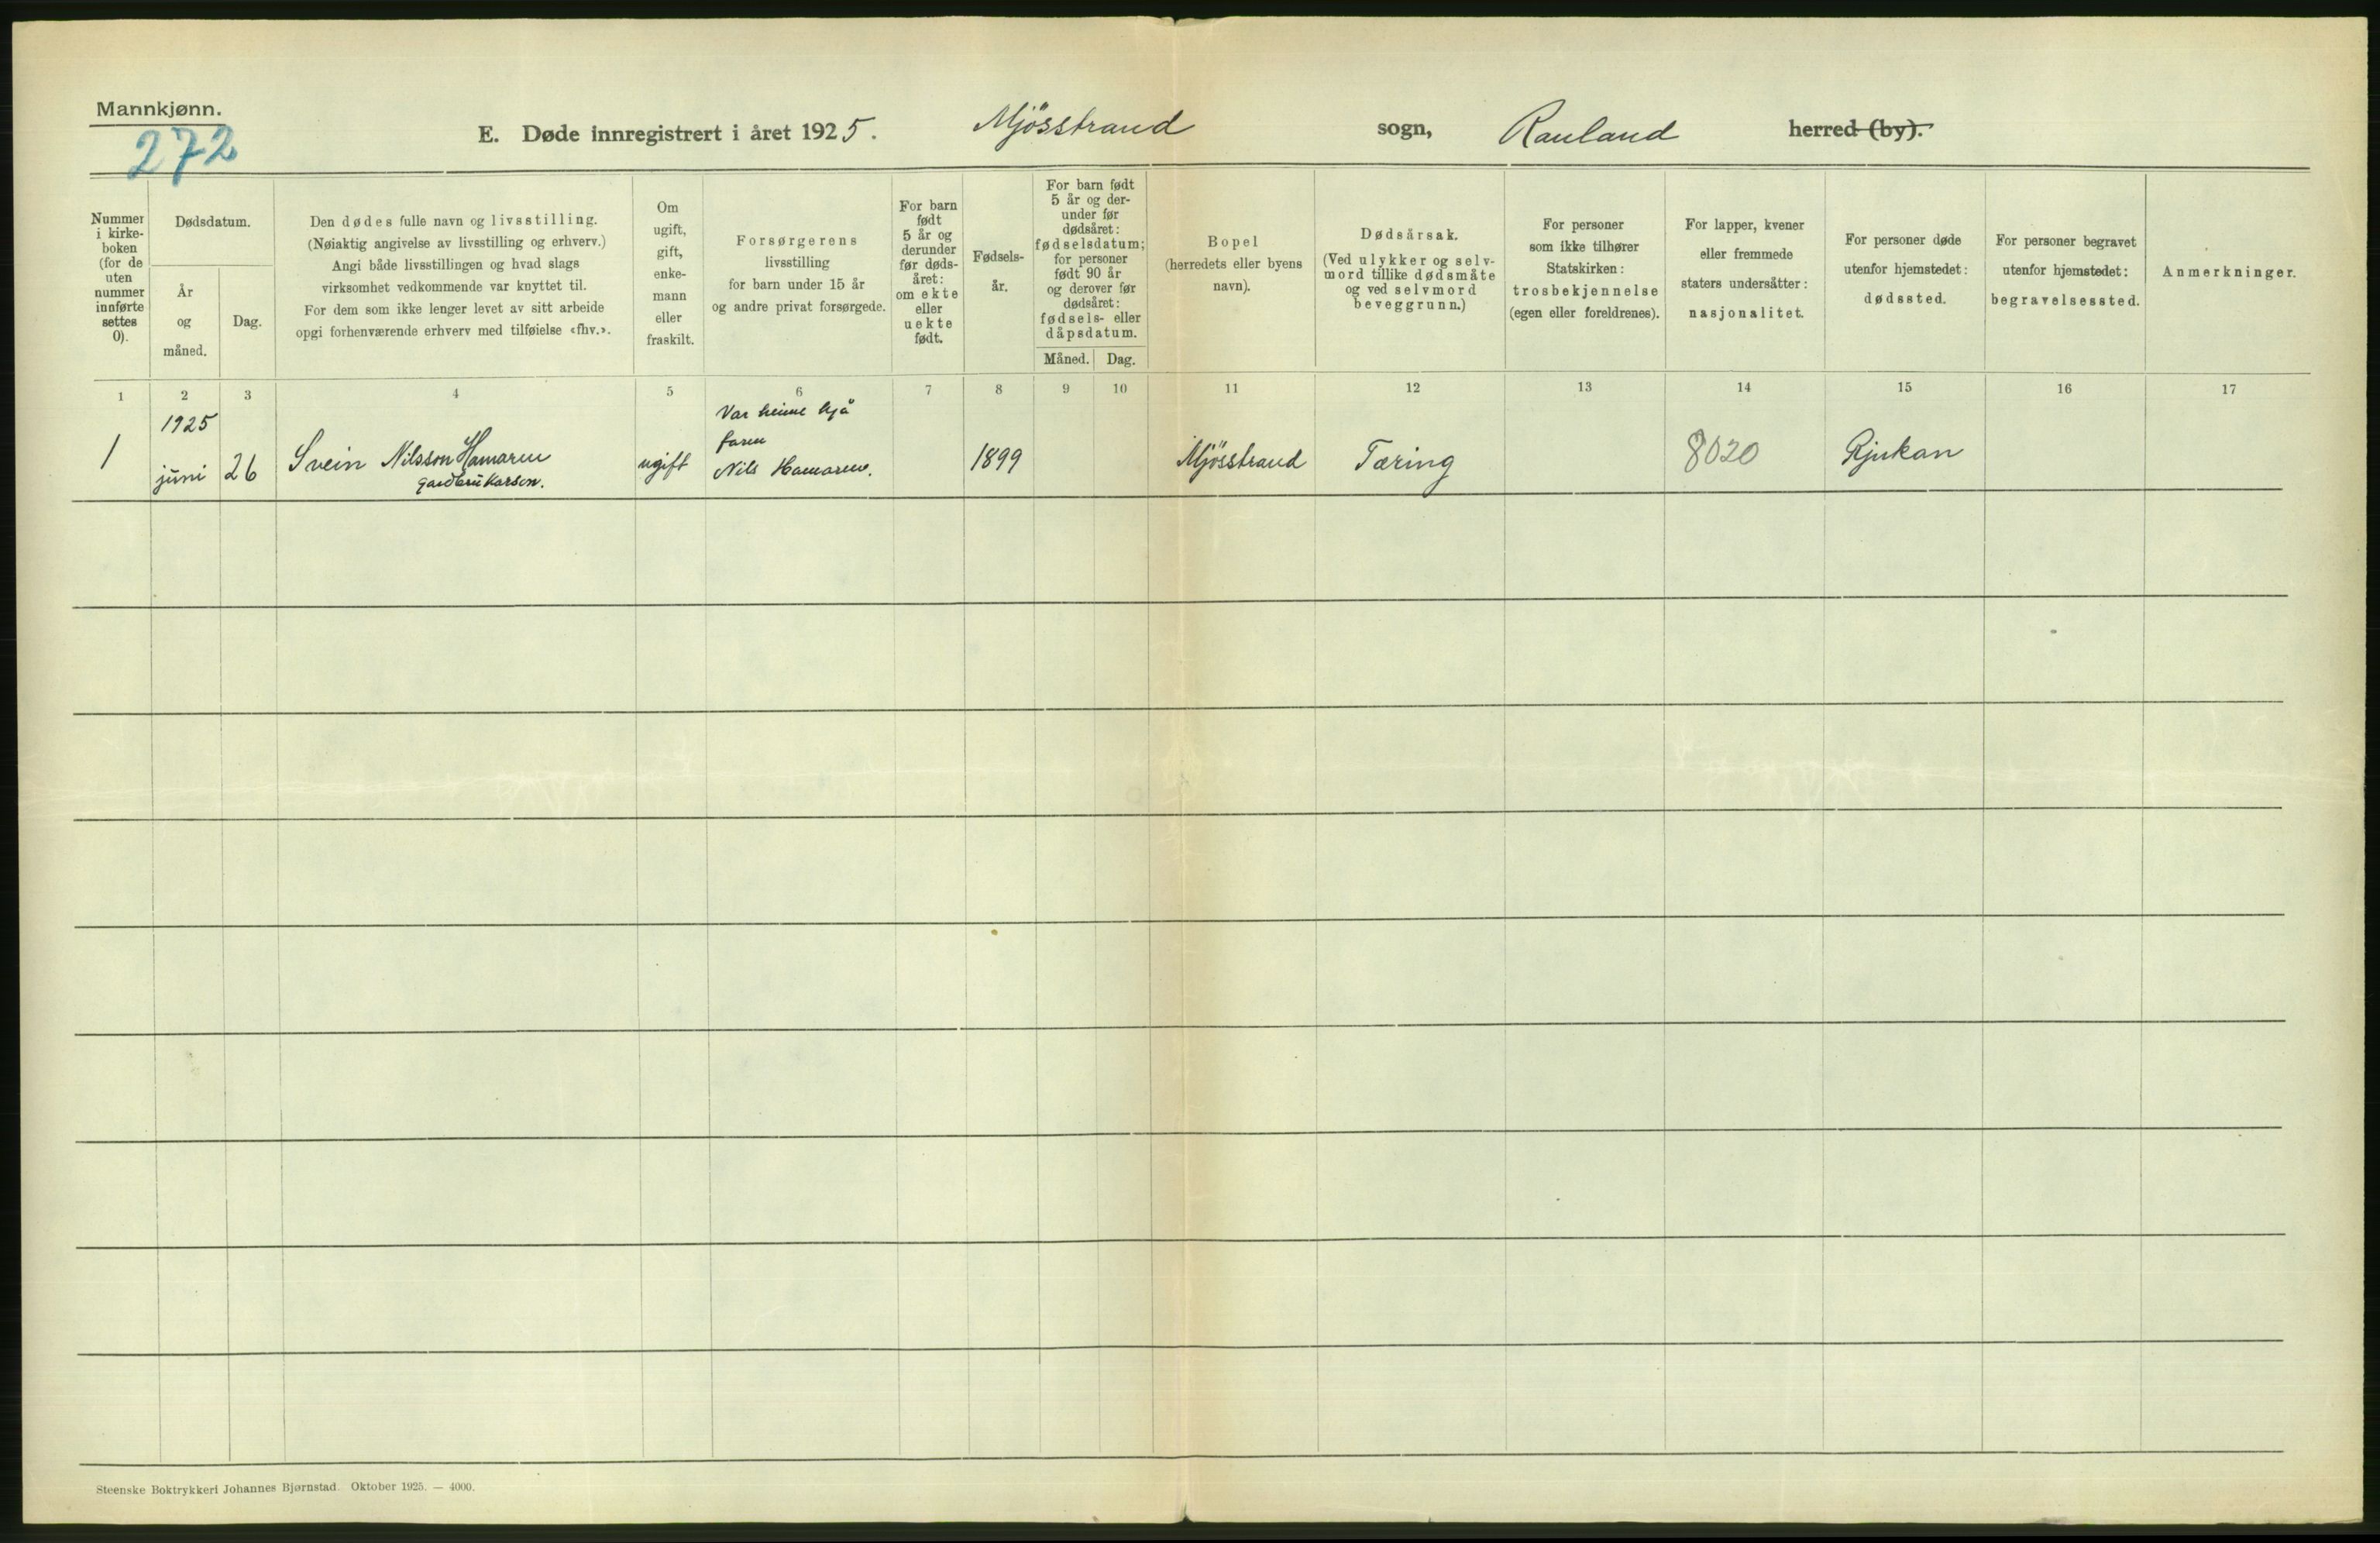 Mannkjønn.
272
E. Døde innregistrert i året 1925. Mjösstrand sogn, Rauland herred (by).
Nummer
i kirke-
boken
(for de
uten
nummer
innførte
settes
0).
Dødsdatum.
År
og
måned.
Dag.
Den dødes fulle navn og livsstilling.
(Nøiaktig angivelse av livsstilling og erhverv.)
Angi både livsstillingen og hvad slags
virksomhet vedkommende var knyttet til.
For dem som ikke lenger levet av sitt arbeide
opgi forhenværende erhverv med tilføielse «fhv.».
Om
ugift,
gift,
enke-
mann
eller
fraskilt.
Forsørgerens
livsstilling
for barn under 15 år
og andre privat forsørgede.
For barn
født
5 år og
derunder
før døds-
året:
om ekte
eller
uekte
født.
Fødsels-
år.
For barn født
5 år og der-
under før
dødsåret:
fødselsdatum;
for personer
født 90 år
og derover før
dødsåret:
fødsels- eller
dåpsdatum.
Måned. Dag.
Bopel
(herredets eller byens
navn).
Dødsårsak.
(Ved ulykker og selv-
mord tillike dødsmåte
og ved selvmord
beveggrunn.)
For personer
som ikke tilhører
Statskirken:
trosbekjennelse
(egen eller foreldrenes).
For lapper, kvener
eller fremmede
staters undersåtter:
nasjonalitet.
For personer døde
utenfor hjemstedet:
dødssted.
For personer begravet
utenfor hjemstedet:
begravelsessted.
Anmerkninger.
1 2 3 4 5 6 7 8 9 10 11 12 13 14 15 16 17
1925
Var heime hjå
faren
1 juni 26 Svein Nilsson Hamaren ugift Nils Hamaren. 1899 Mjösstrand Tæring 8020 Rjukan
gardbrukarson.
Steenske Boktrykkeri Johannes Bjørnstad. Oktober 1925. — 4000.